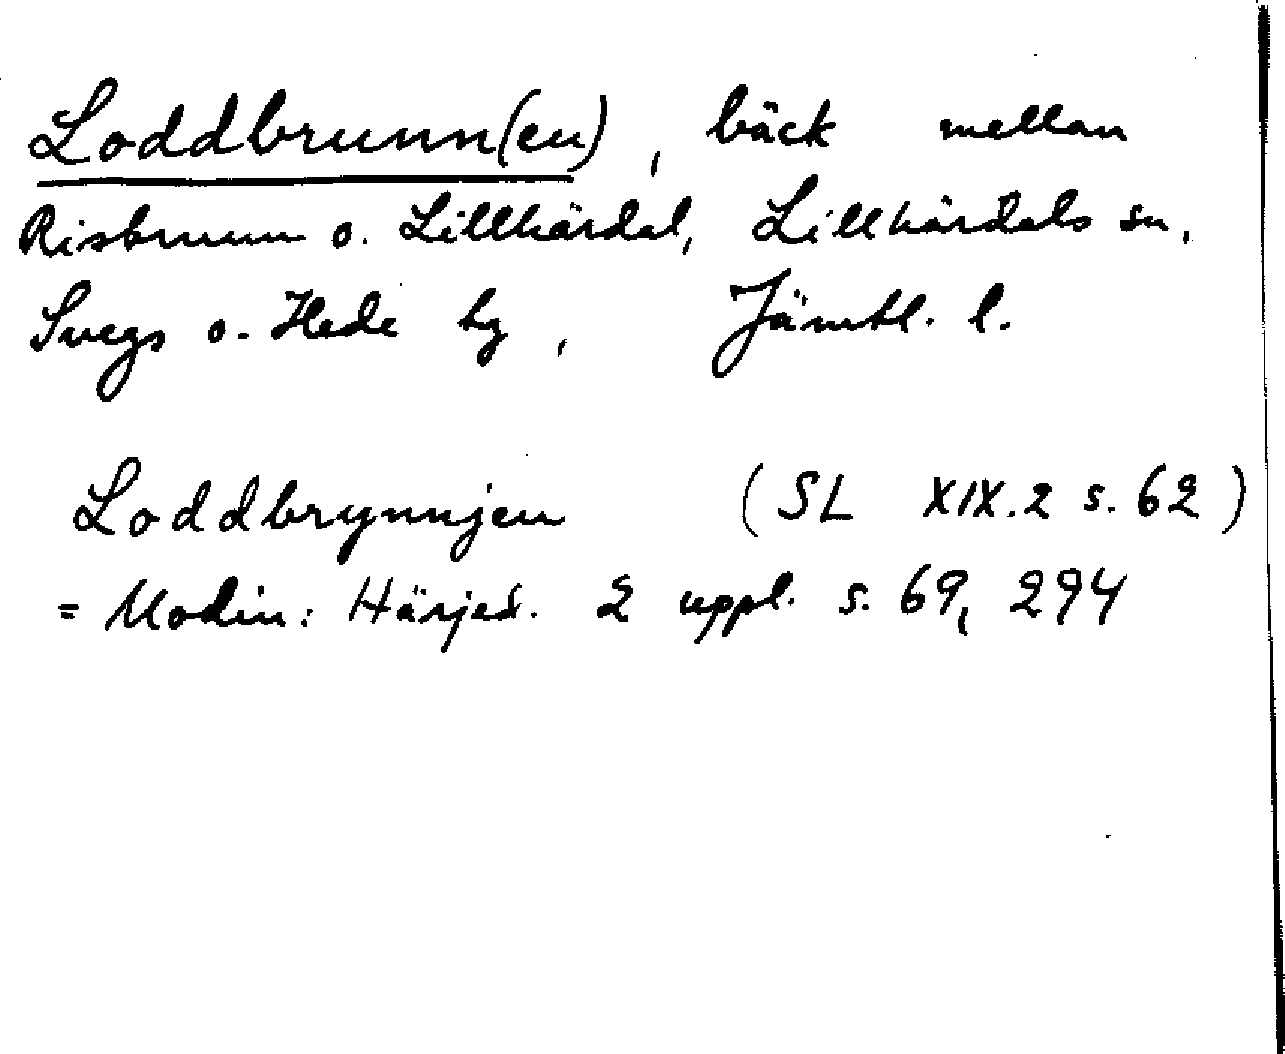 Loddbrunn(en), bäck mellan
Risbrunn o. Lillhärdal, Lillhärdals sn,
Svegs o. Hede hg, Jämtl. l.
Loddbrynnjen (SL XIX.2 s. 62)
= Modin: Härjed. 2 uppl. s. 69, 294